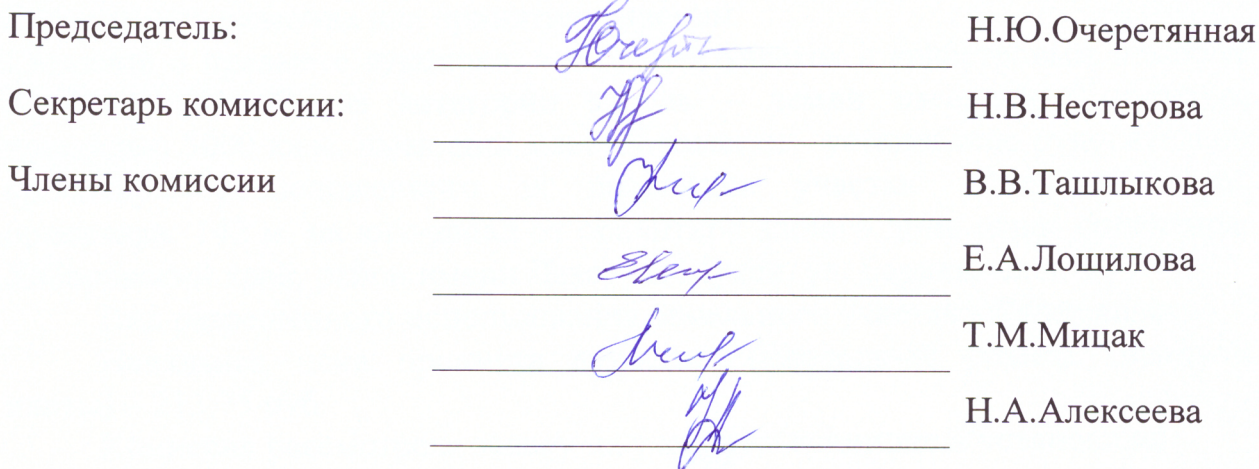 Председатель: Н.Ю.Очеретянная
Секретарь комиссии: Н.В.Нестерова
Члены комиссии В.В.Ташлыкова
Е.А.Лощилова
Т.М.Мицак
Н.А.Алексеева